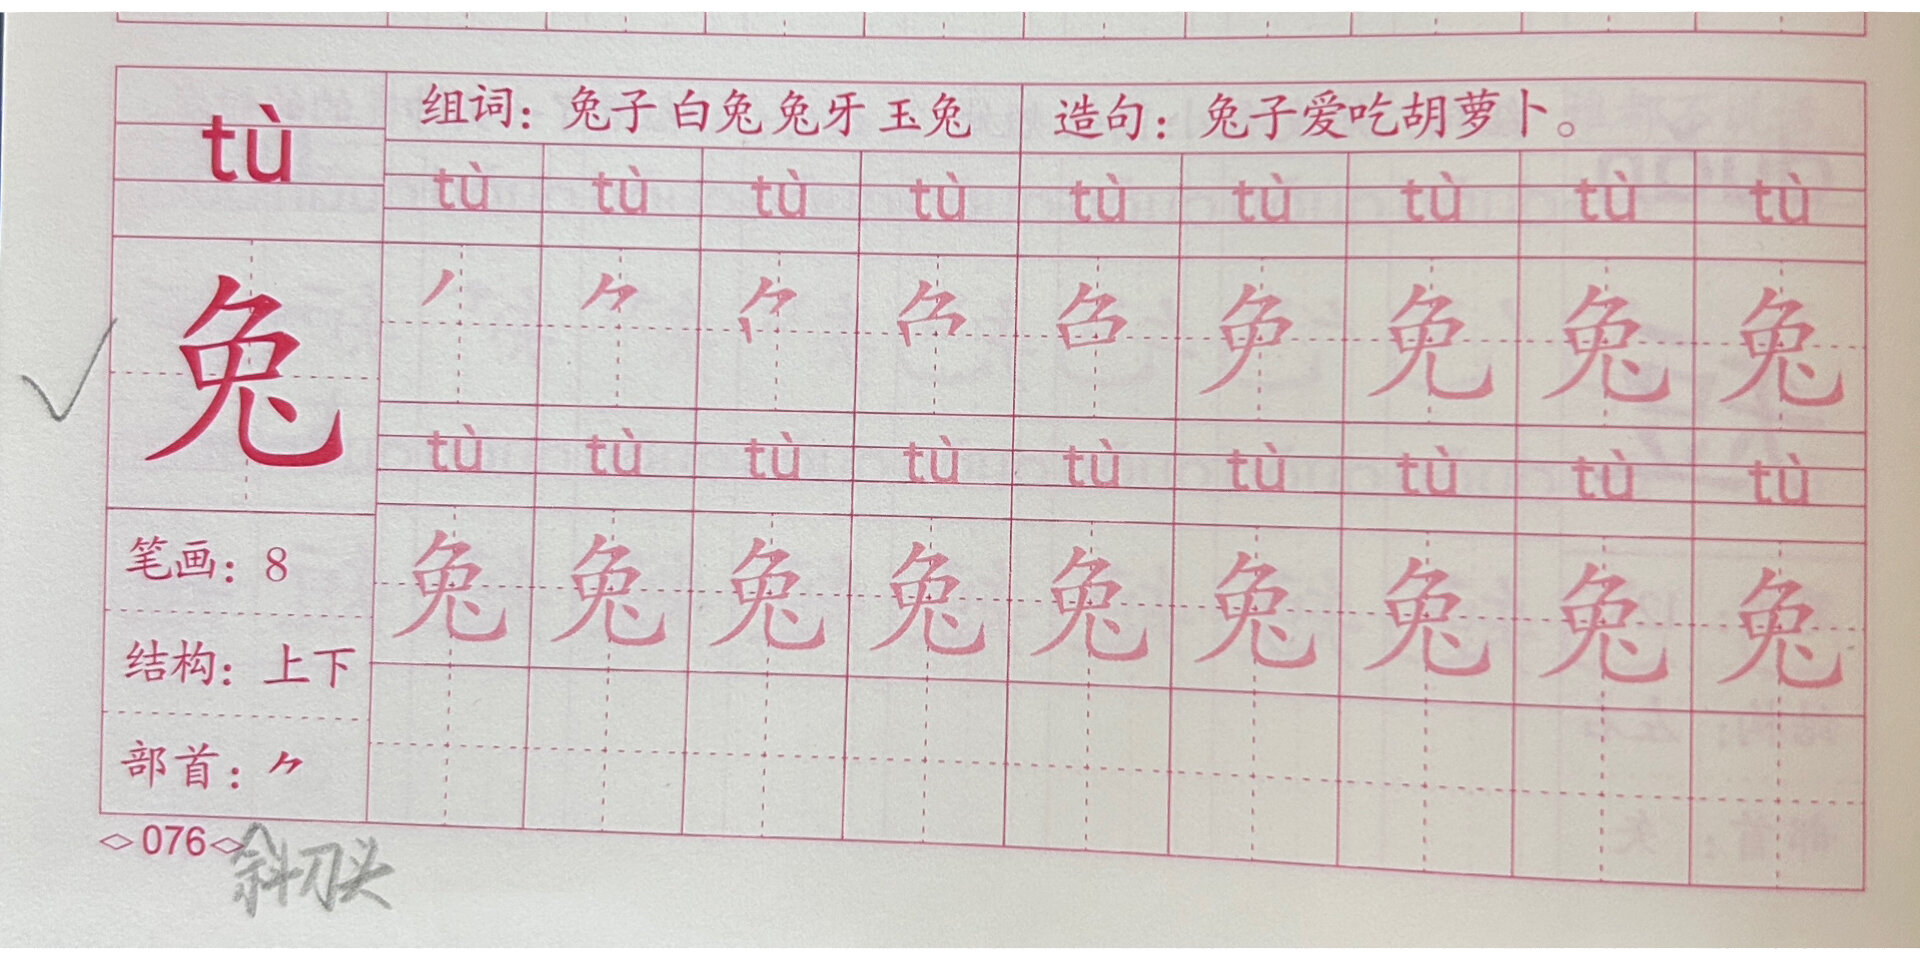 tù 组词：兔子 白兔 兔牙 玉兔 造句：兔子爱吃胡萝卜。
tù tù tù tù tù tù tù tù tù
兔 兔 兔 兔
tù tù tù tù tù tù tù tù tù
兔 兔 兔 兔 兔 兔 兔 兔 兔
笔画：8
结构：上下
部首：⺈
076
斜刀头